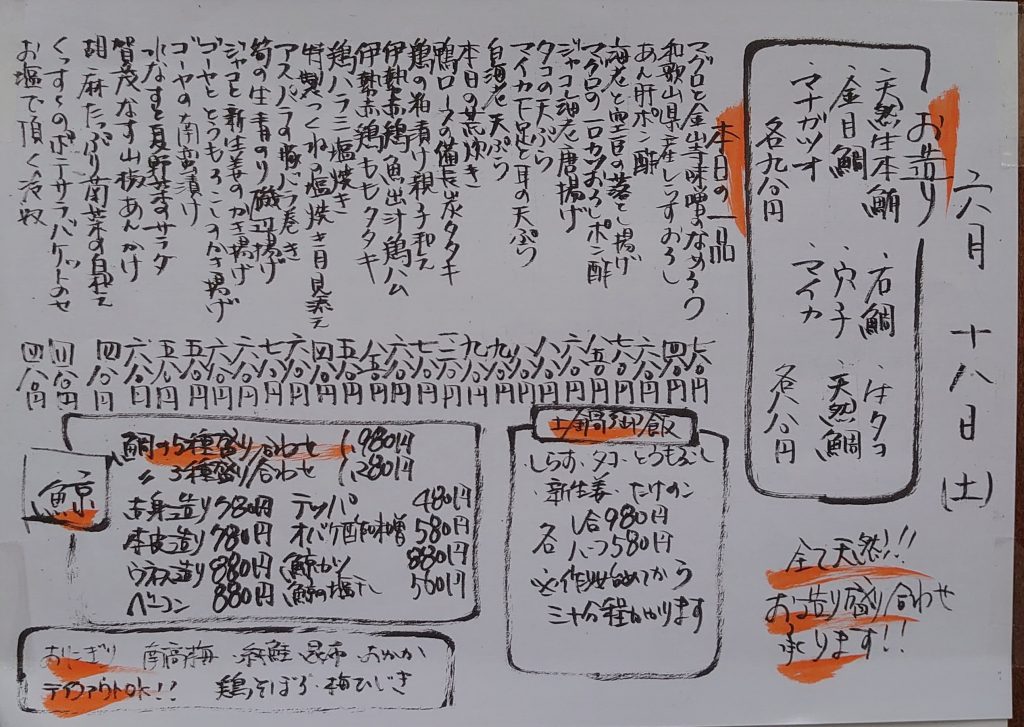 六月十八日(土)
お造り
・天然生本鮪 ・石鯛 ・活タコ
・金目鯛 ・穴子 ・天然鯛
・マナガツオ ・マイカ
各九八〇円 各八八〇円
全て天然!!
お造り盛り合わせ
承ります!!
本日の一品
マグロと金山寺味噌のなめろう
和歌山県産しらすおろし
あん肝ポン酢
海老と空豆の落とし揚げ
マグロの一口カツおろしポン酢
ジャコ海老唐揚げ
タコの天ぷら
マイカ下足と耳の天ぷら
白海老天ぷら
本日の荒炊き
鴨ロースの備長炭タタキ
鶏の粕漬け親子和え
伊勢赤鶏 魚出汁鶏ハム
伊勢赤鶏ももタタキ
鶏ハラミ塩焼き
特製つくねの塩焼き 月見添え
アスパラの豚バラ巻き
筍の生青のり磯辺揚げ
ジャコと新生姜のかき揚げ
ゴーヤととうもろこしのかき揚げ
ゴーヤの南蛮漬け
水なすと夏野菜のサラダ
賀茂なす山椒あんかけ
胡麻たっぷり青菜の白和え
くっすくのポテサラバケットのせ
お塩で頂く冷奴
土鍋御飯
・しらす・タコ・とうもろこし
・新生姜・たけのこ
各 一合980円
ハーフ580円
※作り始めてから
三十分程かかります
鯨
鯨の5種盛り合わせ 1,980円
〃 3種盛り合わせ 1,280円
赤身造り 780円 テッパ 480円
本皮造り 780円 オバケ酢味噌 580円
ウネス造り 880円 鯨カツ 880円
ベーコン 880円 鯨の塩干し 560円
おにぎり 南高梅・紅鮭・昆布・おかか
テイクアウトOK!! 鶏そぼろ・梅ひじき